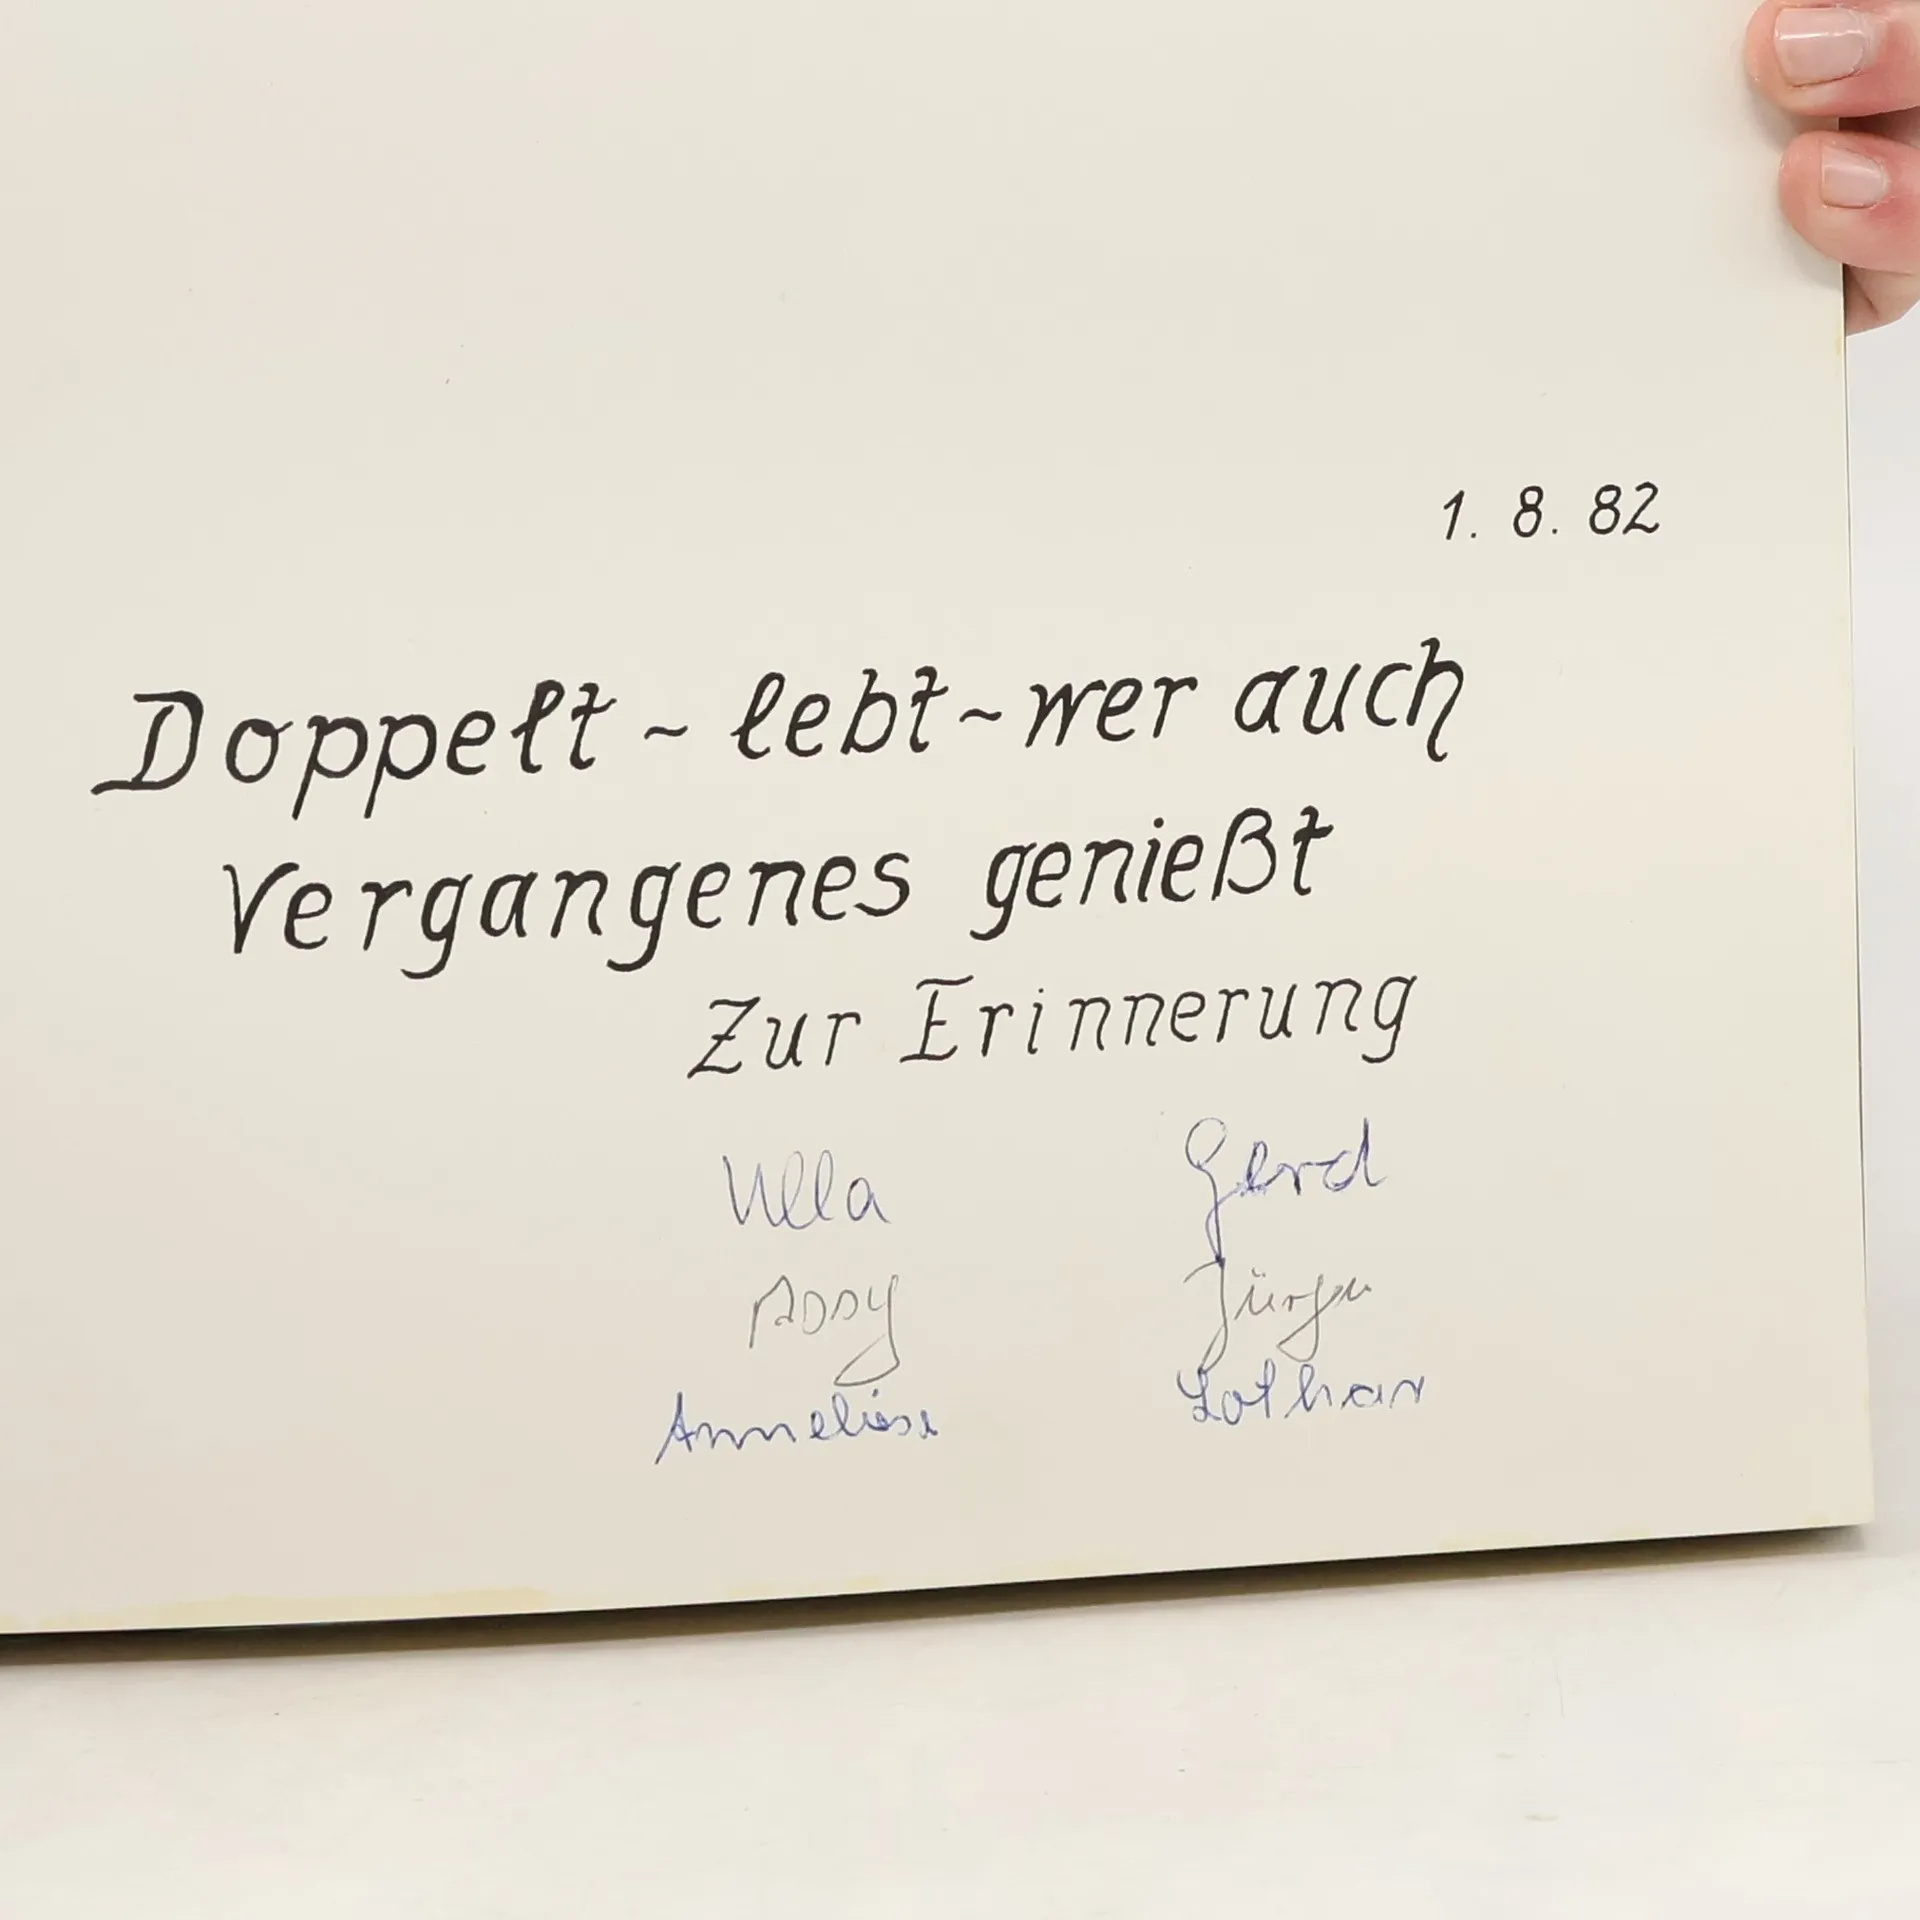 1. 8. 82
Doppelt ~ lebt ~ wer auch
Vergangenes genießt
Zur Erinnerung
Ulla Gerd
Addy Jürgen
Anneliese Lothar